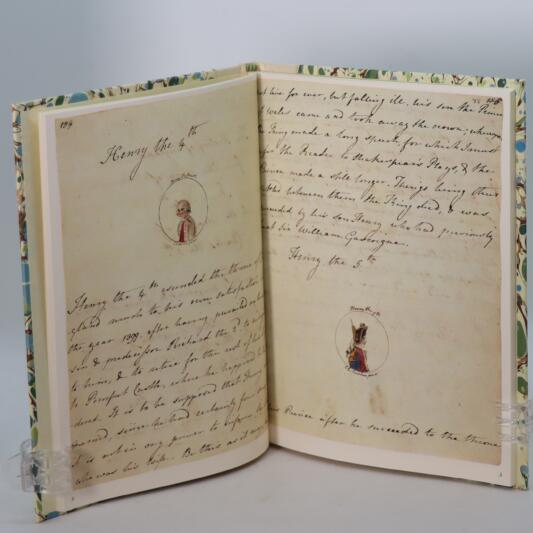 154
Henry the 4th
Henry the 4th
Henry the 4th ascended the throne of
gland much to his own satisfaction
the year 1399, after having prevailed on his
sin & predecessor Richard the 2d to
to him, & to retire for the rest of his
to Pomfret Castle, where he happened
dered. It is to be supposed that Henry
married, since he had certainly four
it is not in my power to inform the
who was his Wife. Be this as it may
155
for ever, but falling ill, his son the Prince
of Wales came and took away the crown; whereupon
the King made a long speech, for which I must
refer the Reader to Shakespear's Plays, & the
Prince made a still longer. Things being thus
between them the King died, & was
succeeded by his son Henry who had previously
beat Sir William Gascoigne.
Henry the 5th
Henry the 5th
This Prince after he succeeded to the throne